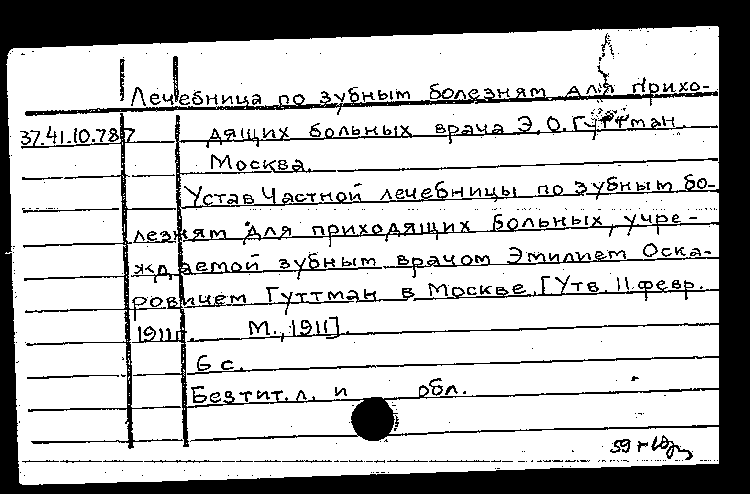 Лечебница по зубным болезням для прихо-
37.41.10.787 дящих больных врача Э.О.Гуттман.
Москва.
Устав Частной лечебницы по зубным бо-
лезням для приходящих больных, учре-
ждаемой зубным врачом Эмилием Оска-
ровичем Гуттман в Москве. [Утв. 11 февр.
1911г. М., 1911].
6 с.
Без тит. л. и обл.
59 г